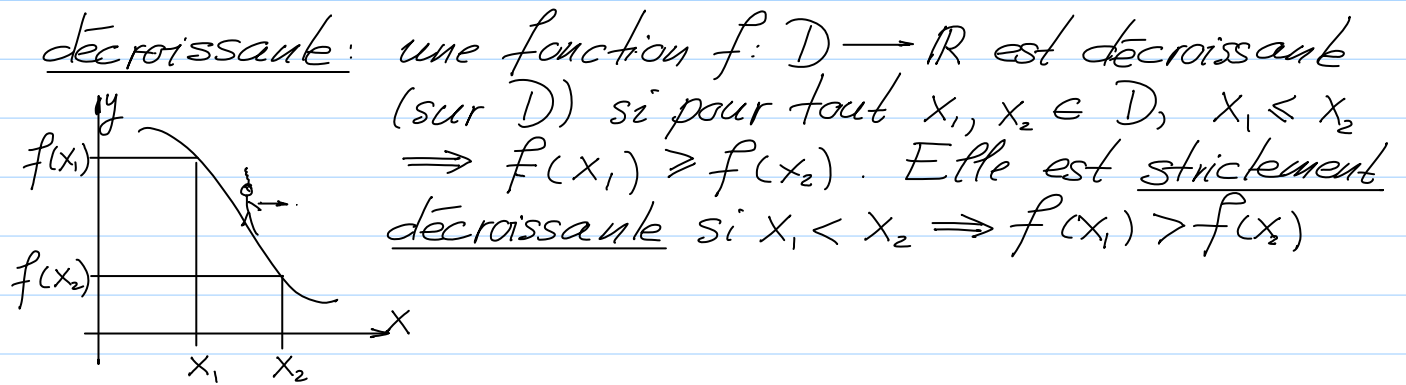 décroissante: une fonction f: D → ℝ est décroissante
(sur D) si pour tout x₁, x₂ ∈ D, x₁ ≤ x₂
⇒ f(x₁) ≥ f(x₂). Elle est strictement
décroissante si x₁ < x₂ ⇒ f(x₁) > f(x₂)
y
f(x₁)
f(x₂)
x
x₁ x₂